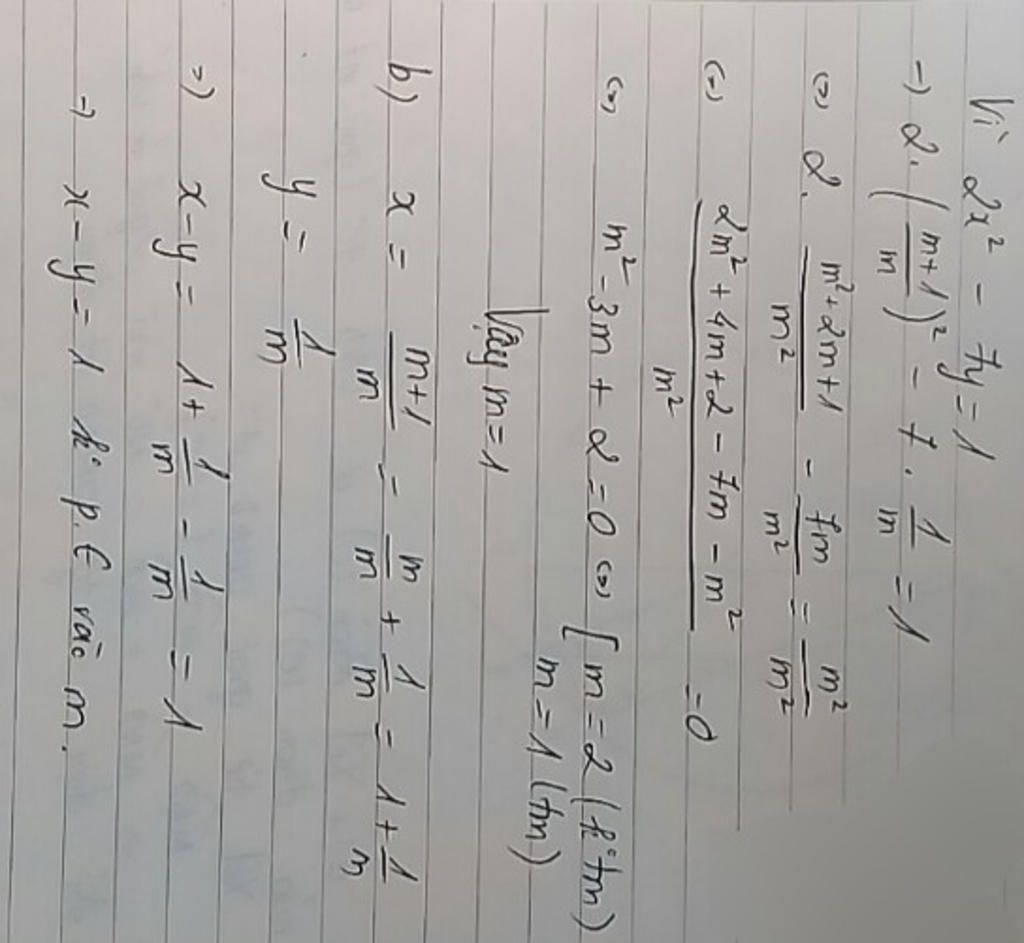 Vì 2x² - 7y = 1
=> 2.(m+1/m)² - 7. 1/m = 1
<=> 2. m²+2m+1/m² - 7m/m² = m²/m²
<=> 2m² + 4m + 2 - 7m - m²/m² = 0
<=> m² - 3m + 2 = 0 <=> [ m = 2 (k° tm)
m = 1 (tm)
Vậy m = 1
b) x = m+1/m = m/m + 1/m = 1 + 1/m
y = 1/m
=> x - y = 1 + 1/m - 1/m = 1
=> x - y = 1 k° p.t vào m.